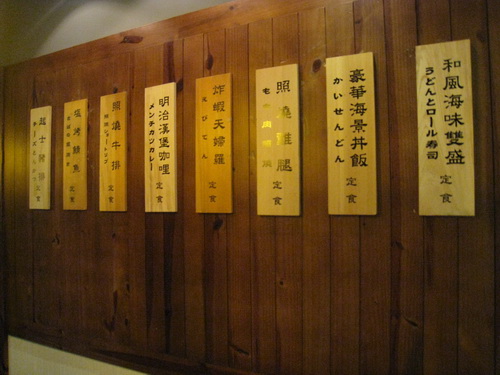 和風海味雙盛
うどんとロール寿司
定食
豪華海景丼飯
かいせんどん
定食
照燒雞腿
定食
炸蝦天婦羅
えびてん
定食
明治漢堡咖哩
メンチカツカレー
定食
照燒牛排
定食
塩烤鯖魚
定食
起士豬排
定食